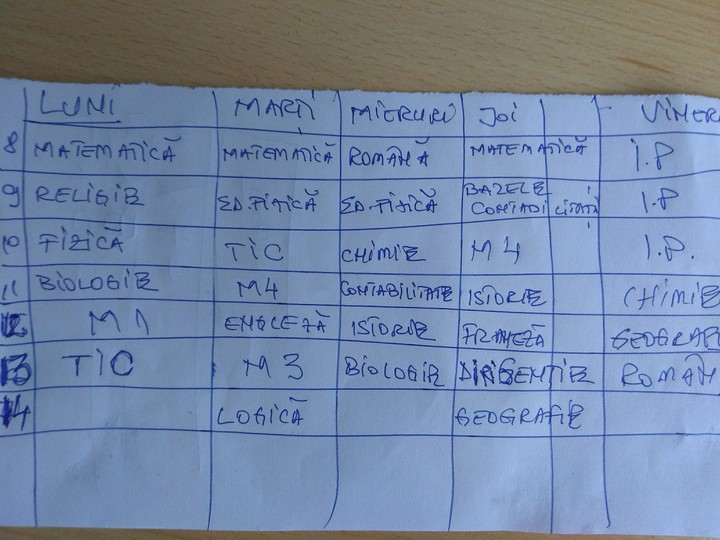 LUNI MARȚI MIERURI JOI VINER
8 MATEMATICĂ MATEMATICĂ ROMANĂ MATEMATICĂ I.P
9 RELIGIE ED.FIZICĂ ED.FIZICĂ BAZELE CONTABILITĂȚII I.P
10 FIZICĂ TIC CHIMIE M4 I.P.
11 BIOLOGIE M4 CONTABILITATE ISTORIE CHIMIE
12 M1 ENGLEZĂ ISTORIE FRANEZĂ GEOGRAFI
13 TIC M3 BIOLOGIE DIRIGENTIE ROMAN
14 LOGICĂ GEOGRAFIE